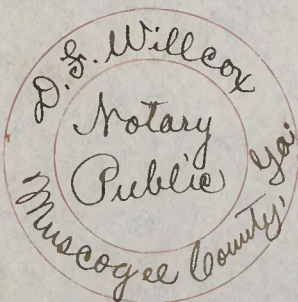 D. F. Willcox
Notary
Public
Muscogee County, Ga.